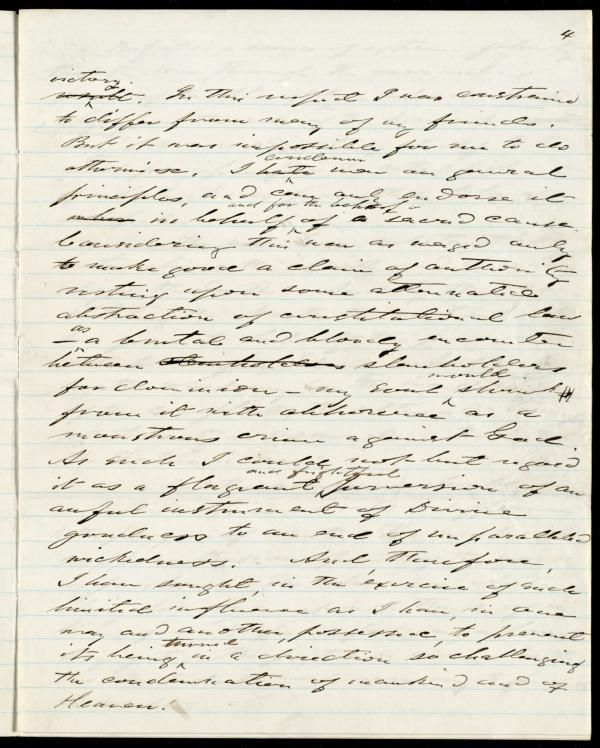 4
victory.
result. In this respect I was constrained
to differ from many of my friends.
But it was impossible for me to do
condemn
otherwise. I hate war on general
principles, and can only endorse it
and for the sake
when in behalf of a sacred cause.
Considering this war as waged only
to make good a claim of authority
resting upon some attenuated
abstraction of constitutional law
as
– a brutal and bloody encounter
between slaveholders slaveholders
for dominion – my soul shrinks
would
from it with abhorrence as a
monstrous crime against God.
As such I could not but regard
and frightful
it as a flagrant perversion of an
awful instrument of Divine
goodness to an end of unparalleled
wickedness. And, therefore,
I have sought, in the exercise of such
limited influence as I have, in one
way and another, possessed, to prevent
turned
its being in a direction so challenging
the condemnation of mankind and of
Heaven.